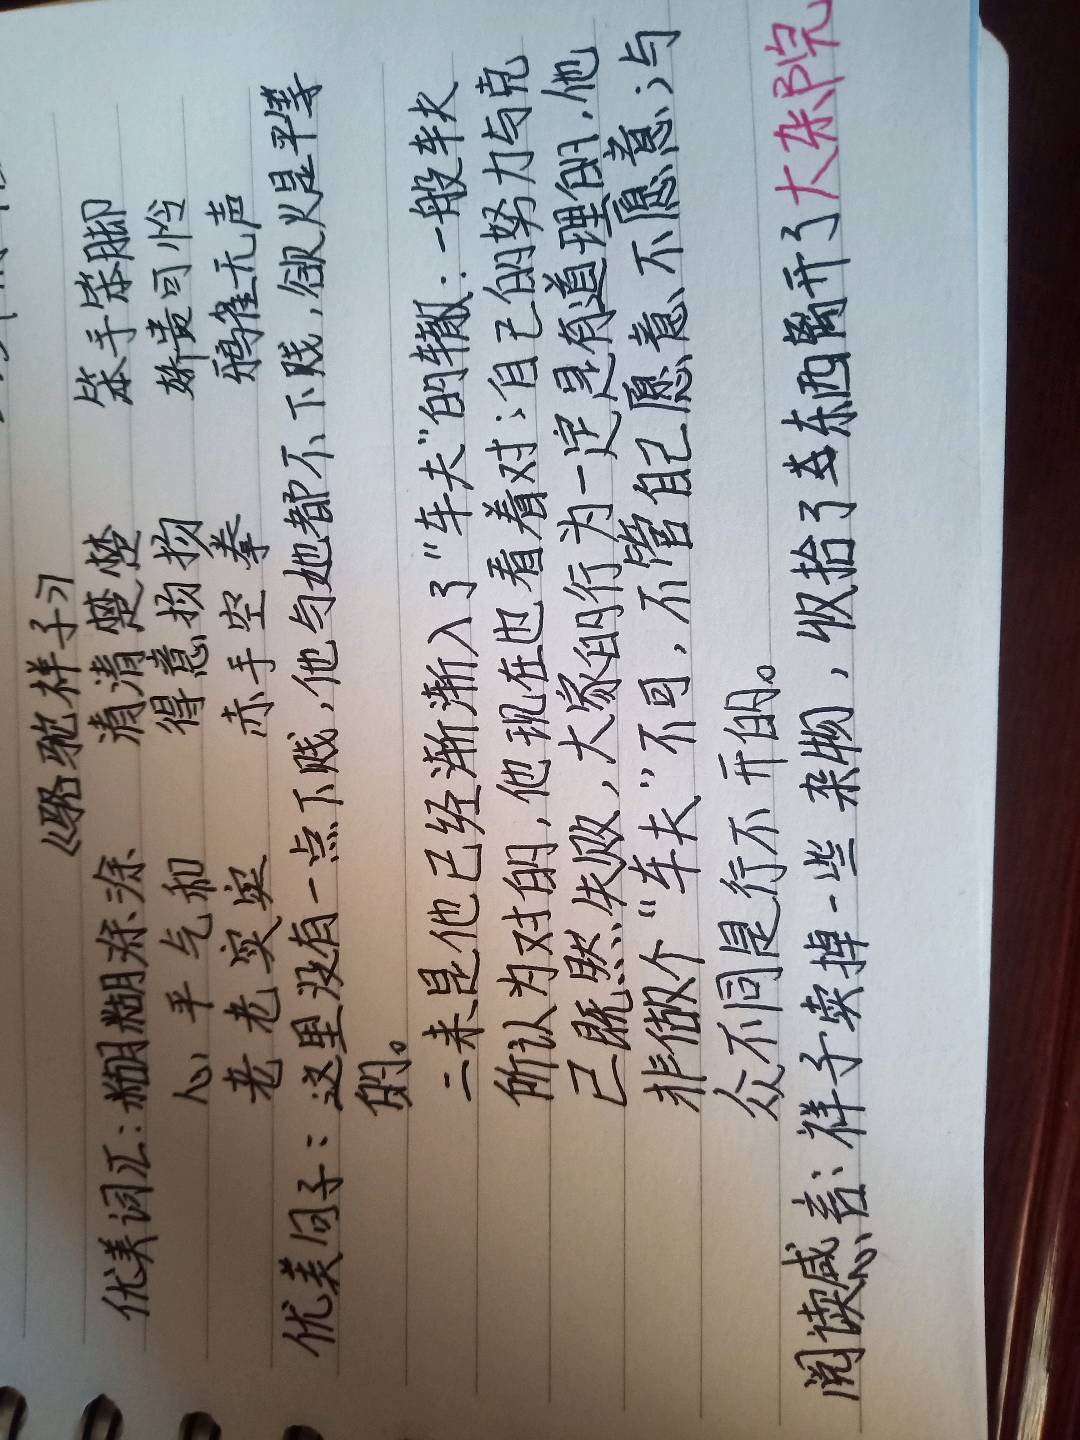 《骆驼祥子》
优美词汇：糊糊涂涂 清清楚楚 笨手笨脚
心平气和 得意扬扬 娇贵可怜
老老实实 赤手空拳 鸦雀无声
优美句子：这里没有一点下贱，他与她都不下贱，欲火是平等
的。
二来是他已经渐渐入了“车夫”的辙：一般车夫
所认为对的，他现在也看着对；自己的努力与克
己既然失败，大家的行为一定是有道理的，他
非做个“车夫”不可，不管自己愿意不愿意；与
众不同是行不开的。
阅读感言：祥子卖掉一些杂物，收拾了东西离开了大杂院